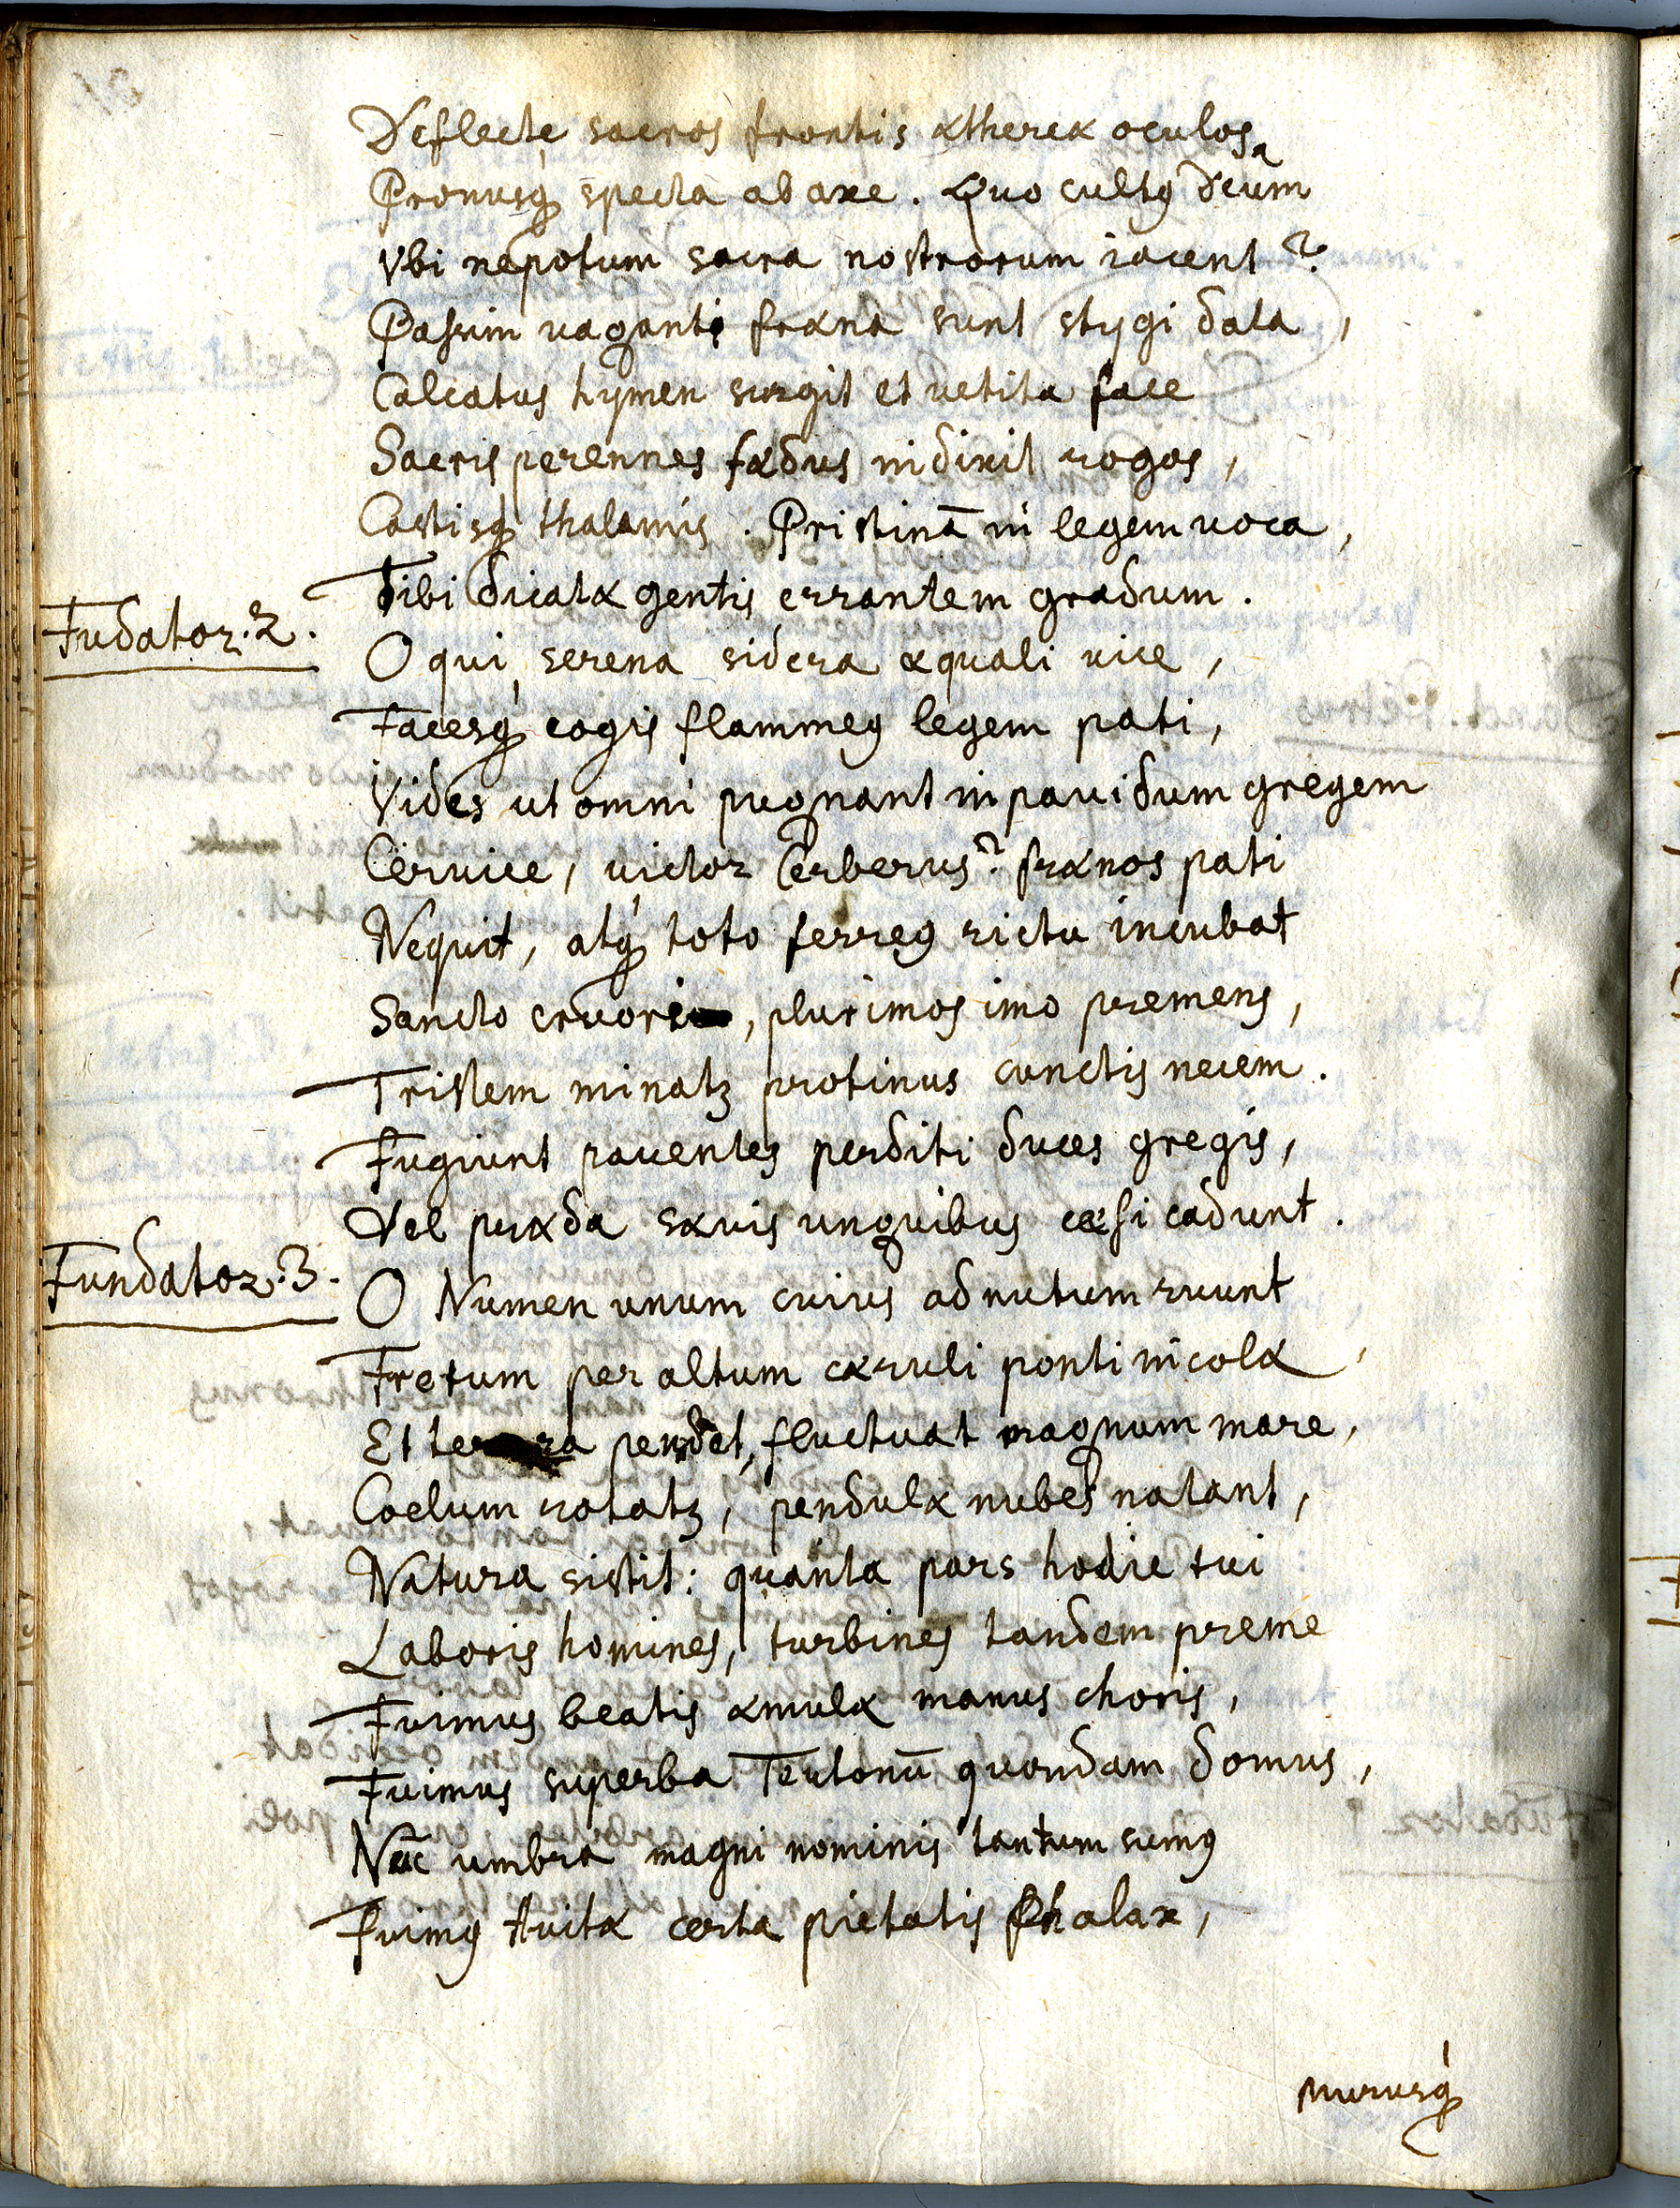 Deflecte sacros frontis æthereæ oculos
Pronusq́ specta ab axe. Quo cultꝰ Deum?
Vbi nepotum sacra nostrorum iacent?
Passim vaganti fræna sunt stygi data,
Calcatus hymen surgit et vetita face
Sacris perennes fædus indixit rogos,
Castisq́ thalamis. Pristinā in legem voca,
Tibi dicatæ gentis errantem gradum.
Fūdator. 2.
O qui serena sidera æquali vice,
Facesq́ cogis flammeꝰ legem pati,
Vides ut omni pugnant in pavidum gregem
Cervice, victor Cerberus? frænos pati
Nequit, atq́ toto ferreꝰ rictu incubat
Sancto cruori, plurimos imo premens,
Tristem minatꝫ protinus cunctis necem.
Fugiunt paventes perditi duces gregis,
Vel præda sævis unguibus cæsi cadunt.
Fundator. 3.
O Numen unum cuius ad nutum ruunt
Fretum per altum cæruli ponti incolæ,
Et terra pendet, fluctuat magnum mare,
Coelum rotatꝫ, pendulæ nubes natant,
Natura sistit: quanta pars hodie tui
Laboris homines, turbines tandem preme
Fuimus beatis æmulæ manus choris,
Fuimus superba Teutonū quondam domus,
Nūc umbra magni nominis tantum sumꝰ
Fuimꝰ Avitæ certa pietatis Phalax,
murusq́